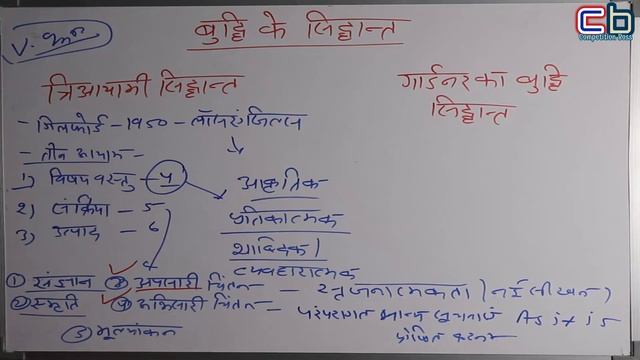 Cb
Competition Boss
बुद्धि के सिद्धान्त
त्रिआयामी सिद्धान्त
गार्डनर का बुद्धि
सिद्धान्त
- गिलफोर्ड - 1950 -
- तीन आयाम -
1) विषय वस्तु - 4
आकृतिक
2) संक्रिया - 5
प्रतिकात्मक
3) उत्पाद - 6
शाब्दिक
व्यवहारात्मक
① संज्ञान ③ अपसारी चिंतन - सृजनात्मकता
② स्मृति ④ अभिसारी चिंतन - परंपरागत As it is
⑤ मूल्यांकन